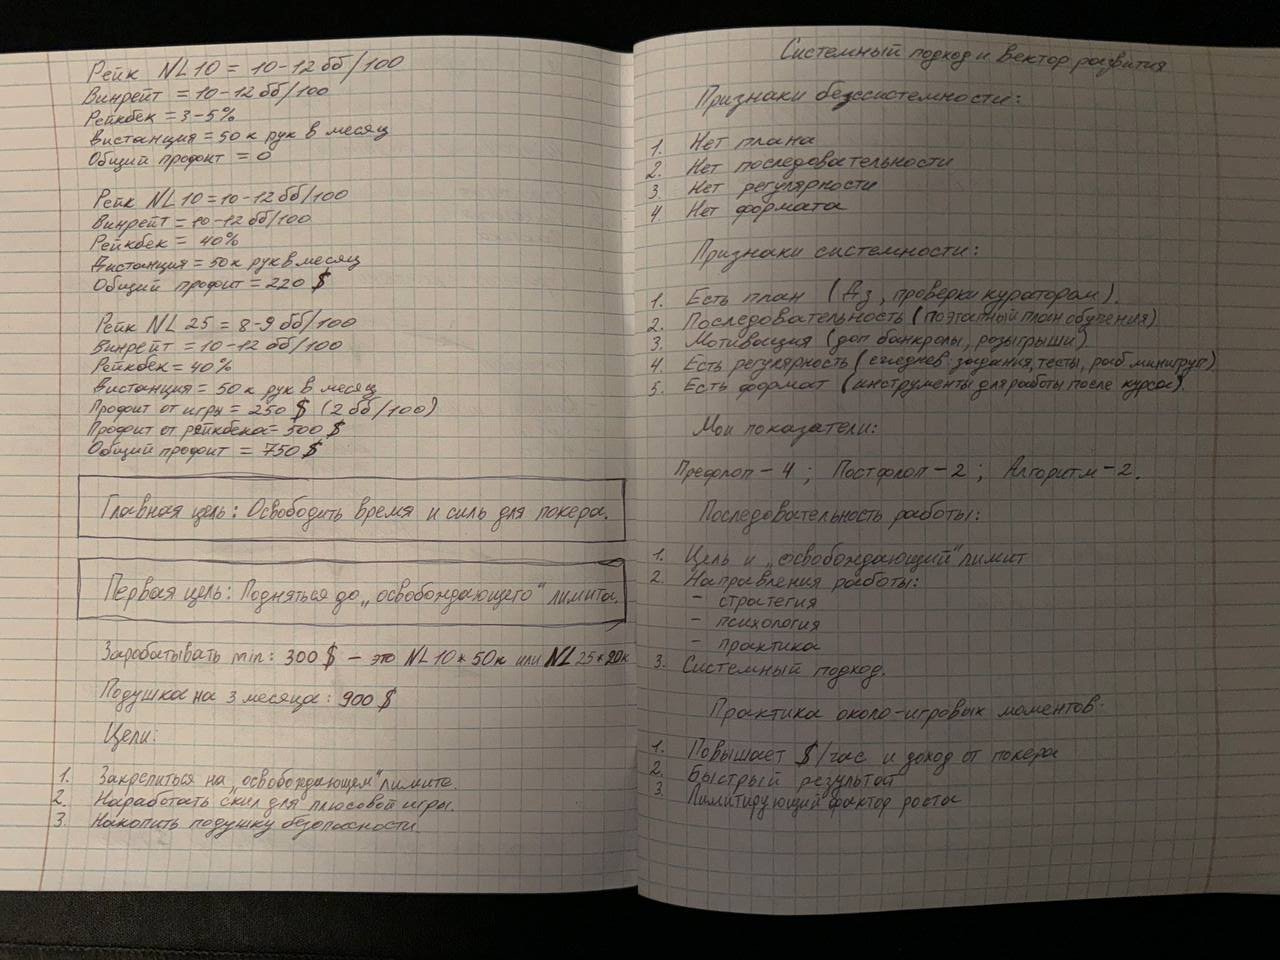 Рейк NL10 = 10-12 бб/100
Винрейт = 10-12 бб/100
Рейкбек = 3-5%
Дистанция = 50к рук в месяц
Общий профит = 0
Рейк NL10 = 10-12 бб/100
Винрейт = 10-12 бб/100
Рейкбек = 40%
Дистанция = 50к рук в месяц
Общий профит = 220 $
Рейк NL 25 = 8-9 бб/100
Винрейт = 10-12 бб/100
Рейкбек = 40%
Дистанция = 50к рук в месяц
Профит от игры = 250 $ (2 бб/100)
Профит от рейкбека = 500 $
Общий профит = 750 $
Главная цель: Освободить время и силь для покера.
Первая цель: Подняться до „освобождающего" лимита.
Заробатывать min: 300 $ – это NL10 * 50к или NL 25 * 20к
Подушка на 3 месяца: 900 $
Цели:
1. Закрепиться на „освобождающем" лимите.
2. Наработать скил для плюсовой игры.
3. Накопить подушку безопасности.
Системный подход и Вектор развития
Признаки бессистемности:
1. Нет плана
2. Нет последовательности
3. Нет регулярности
4. Нет формата
Признаки системности:
1. Есть план (Дз, проверки куратором).
2. Последовательность (поэтапный план обучения)
3. Мотивация (доп банкролы, розыгрыши)
4. Есть регулярность (ежеднев. задания, тесты, раб. минигруп)
5. Есть формат (инструменты для работы после курса).
Мои показатели:
Префлоп – 4 ; Постфлоп – 2 ; Алгоритм – 2.
Последовательность работы:
1. Цель и „освобождающий" лимит
2. Направления работы:
– стратегия
– психология
– практика
3. Системный подход.
Практика около-игровых моментов:
1. Повышает $/час и доход от покера
2. Быстрый результат
3. Лимитирующий фактор роста